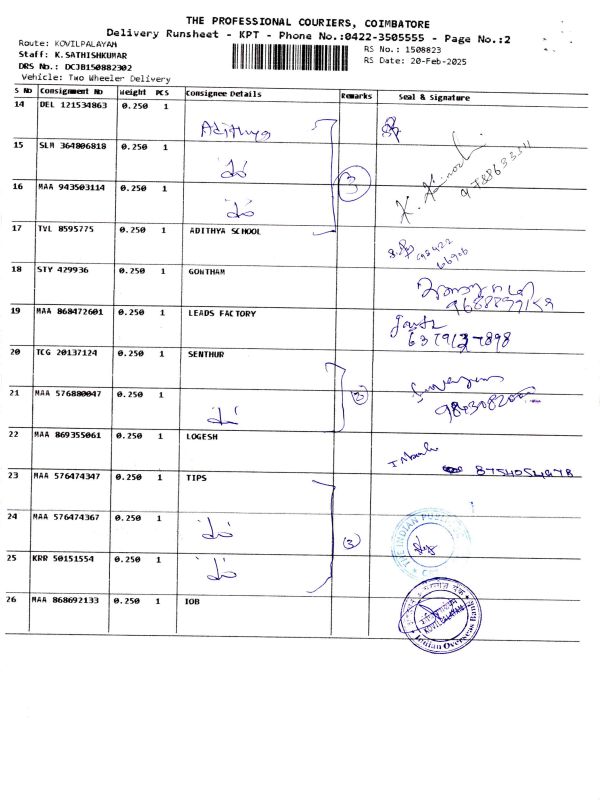 THE PROFESSIONAL COURIERS, COIMBATORE
Delivery Runsheet - KPT - Phone No.:0422-3505555 - Page No.:2
Route: KOVILPALAYAM
Staff: K.SATHISHKUMAR
DRS No.: DCJB150882302
Vehicle: Two Wheeler Delivery
RS No.: 1508823
RS Date: 20-Feb-2025
S No Consignment No Weight PCS Consignee Details Remarks Seal & Signature
14 DEL 121534863 0.250 1
Adithya
15 SLM 364806818 0.250 1
16 MAA 943503114 0.250 1
3
17 TVL 8595775 0.250 1 ADITHYA SCHOOL
18 STY 429936 0.250 1 GONTHAM
19 MAA 868472601 0.250 1 LEADS FACTORY
20 TCG 20137124 0.250 1 SENTHUR
21 MAA 576880047 0.250 1
2
22 MAA 869355061 0.250 1 LOGESH
8754054978
23 MAA 576474347 0.250 1 TIPS
24 MAA 576474367 0.250 1
3
THE INDIAN PUBLIC
25 KRR 50151554 0.250 1
26 MAA 868692133 0.250 1 IOB
KOVILPALAYAM
Indian Overseas Bank